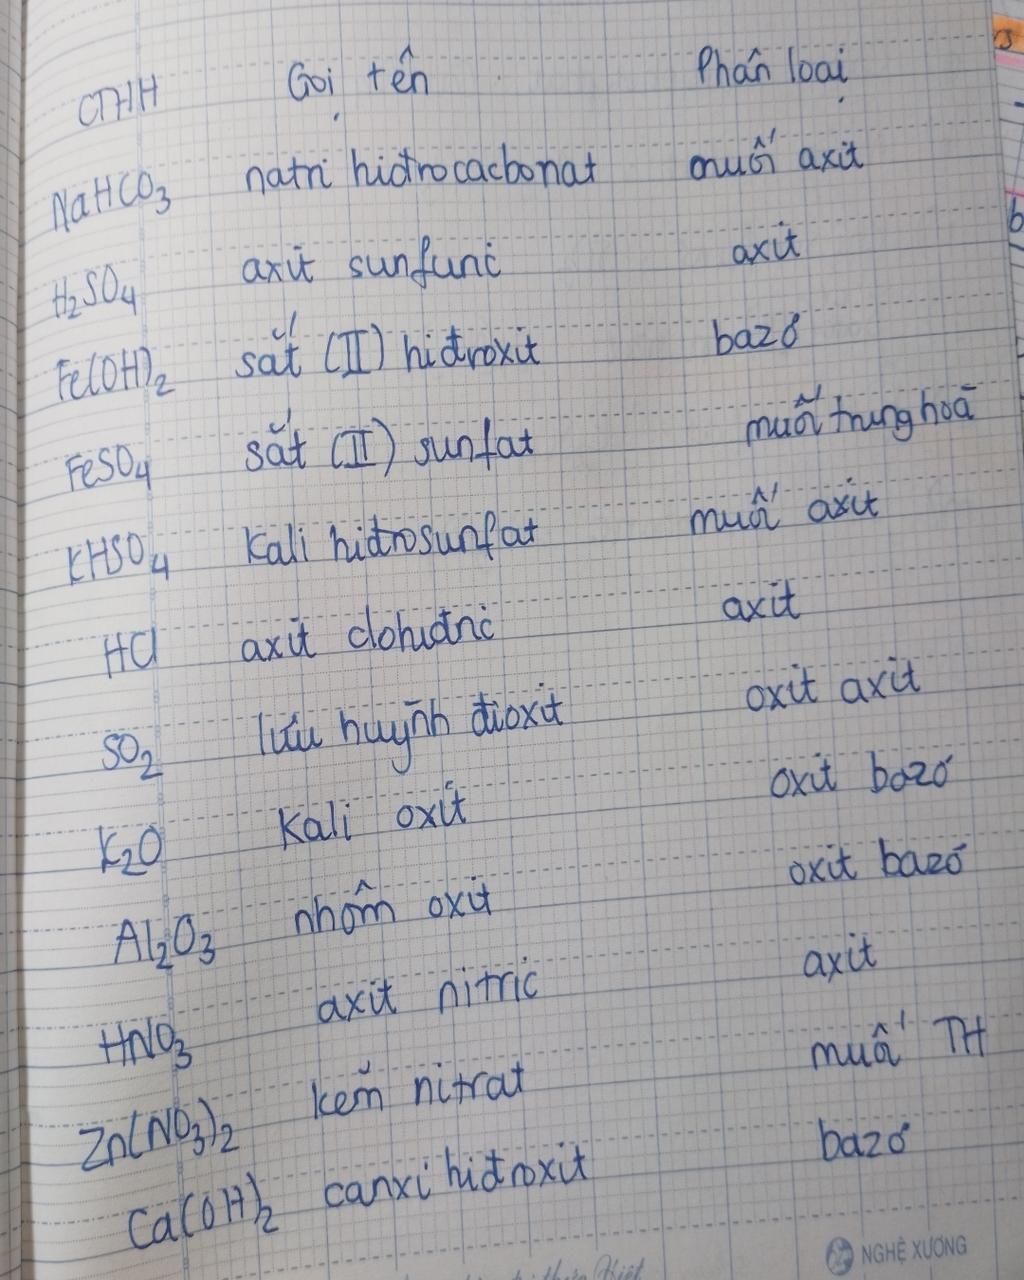 CTHH Gọi tên Phân loại
NaHCO3 natri hiđrocacbonat muối axit
H2SO4 axit sunfuric axit
Fe(OH)2 sắt (II) hiđroxit bazơ
FeSO4 sắt (II) sunfat muối trung hoà
KHSO4 kali hiđrosunfat muối axit
HCl axit clohiđric axit
SO2 lưu huỳnh đioxit oxit axit
K2O Kali oxit oxit bazơ
Al2O3 nhôm oxit oxit bazơ
HNO3 axit nitric axit
Zn(NO3)2 kẽm nitrat muối TH
Ca(OH)2 canxi hiđroxit bazơ
NGHỆ XƯƠNG